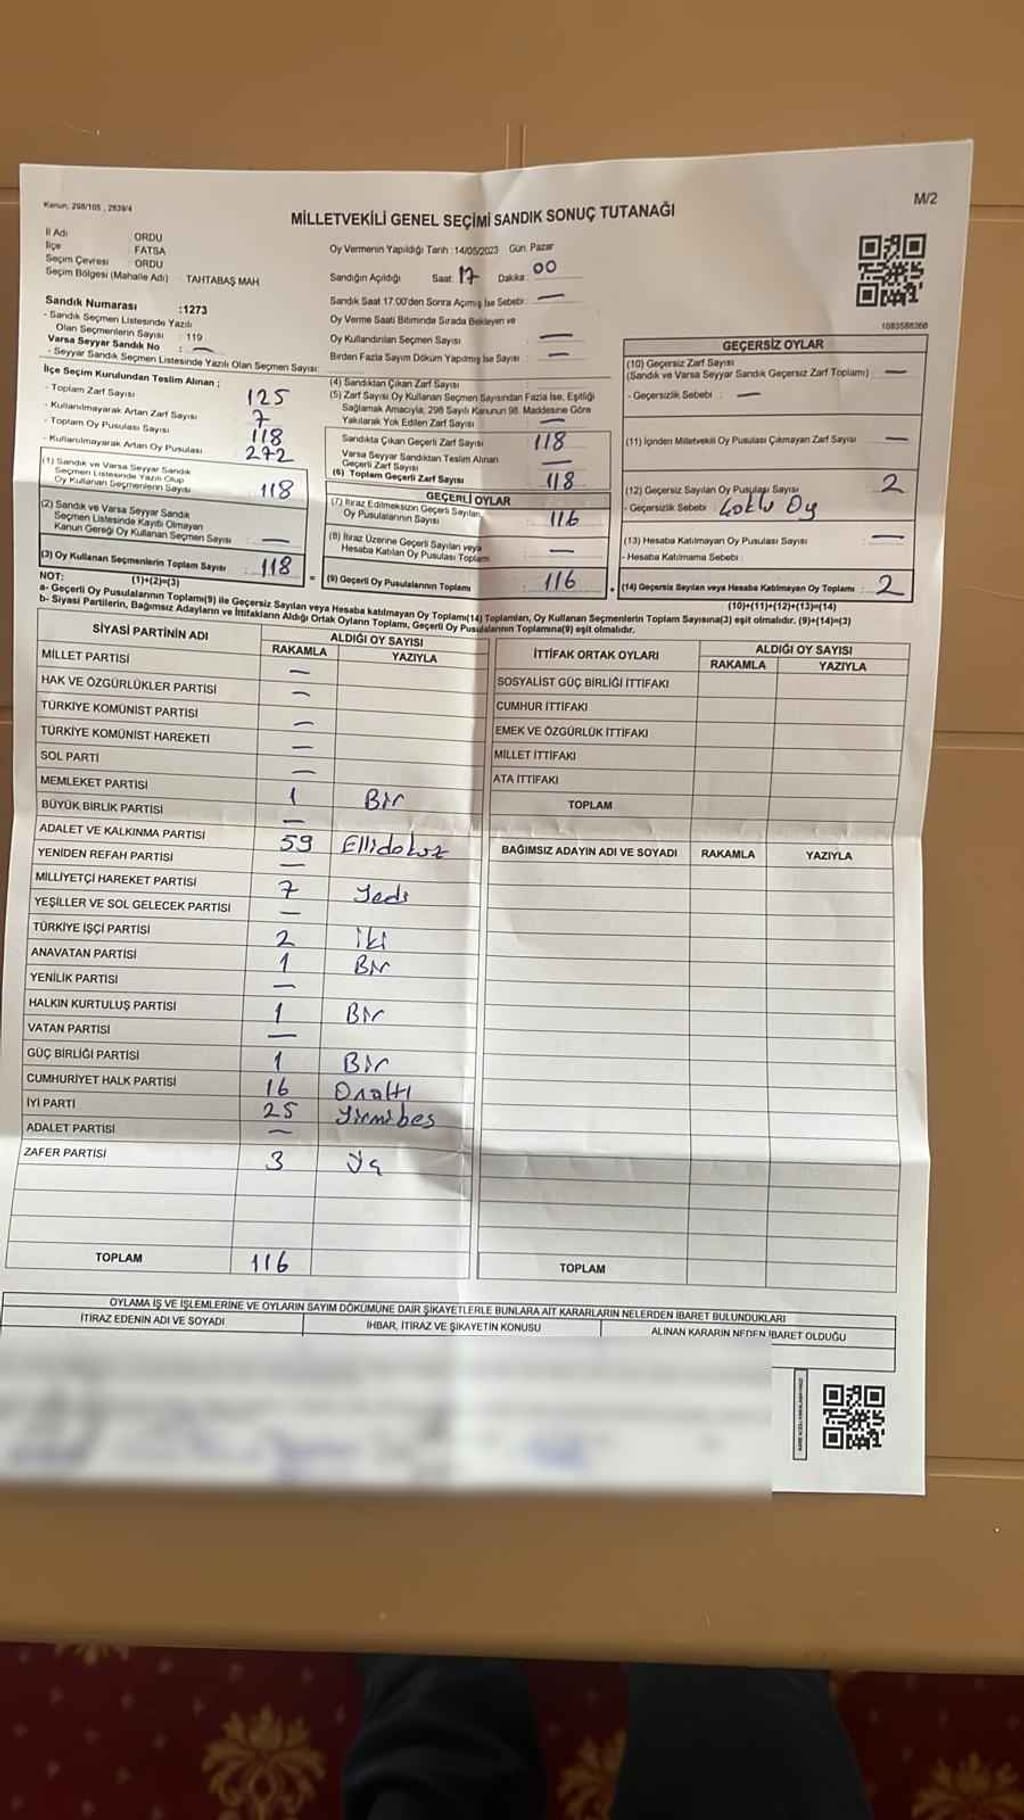 Kanun: 298/105 , 2839/4
M/2
MİLLETVEKİLİ GENEL SEÇİMİ SANDIK SONUÇ TUTANAĞI
İl Adı ORDU
İlçe FATSA
Seçim Çevresi ORDU
Seçim Bölgesi (Mahalle Adı) TAHTABAŞ MAH
Sandık Numarası :1273
- Sandık Seçmen Listesinde Yazılı
Olan Seçmenlerin Sayısı : 119
Varsa Seyyar Sandık No : —
- Seyyar Sandık Seçmen Listesinde Yazılı Olan Seçmen Sayısı:
İlçe Seçim Kurulundan Teslim Alınan ;
- Toplam Zarf Sayısı 125
- Kullanılmayarak Artan Zarf Sayısı 7
- Toplam Oy Pusulası Sayısı 118
- Kullanılmayarak Artan Oy Pusulası 272
(1) Sandık ve Varsa Seyyar Sandık
Seçmen Listesinde Yazılı Olup
Oy Kullanan Seçmenlerin Sayısı 118
(2) Sandık ve Varsa Seyyar Sandık
Seçmen Listesinde Kayıtlı Olmayan
Kanun Gereği Oy Kullanan Seçmen Sayısı —
(3) Oy Kullanan Seçmenlerin Toplam Sayısı : 118
(1)+(2)=(3)
Oy Vermenin Yapıldığı Tarih : 14/05/2023 Gün: Pazar
Sandığın Açıldığı Saat: 17 Dakika: 00
Sandık Saat 17.00'den Sonra Açılmış İse Sebebi: —
Oy Verme Saati Bitiminde Sırada Bekleyen ve
Oy Kullandırılan Seçmen Sayısı —
Birden Fazla Sayım Döküm Yapılmış İse Sayısı —
(4) Sandıktan Çıkan Zarf Sayısı
(5) Zarf Sayısı Oy Kullanan Seçmen Sayısından Fazla İse, Eşitliği
Sağlamak Amacıyla, 298 Sayılı Kanunun 98. Maddesine Göre
Yakılarak Yok Edilen Zarf Sayısı —
Sandıkta Çıkan Geçerli Zarf Sayısı 118
Varsa Seyyar Sandıktan Teslim Alınan
Geçerli Zarf Sayısı —
(6) Toplam Geçerli Zarf Sayısı 118
GEÇERLİ OYLAR
(7) İtiraz Edilmeksizin Geçerli Sayılan,
Oy Pusulalarının Sayısı 116
(8) İtiraz Üzerine Geçerli Sayılan veya
Hesaba Katılan Oy Pusulası Toplamı —
(9) Geçerli Oy Pusulalarının Toplamı 116
1083588368
GEÇERSİZ OYLAR
(10) Geçersiz Zarf Sayısı
(Sandık ve Varsa Seyyar Sandık Geçersiz Zarf Toplamı) —
- Geçersizlik Sebebi : —
(11) İçinden Milletvekili Oy Pusulası Çıkmayan Zarf Sayısı —
(12) Geçersiz Sayılan Oy Pusulası Sayısı 2
- Geçersizlik Sebebi Çoklu Oy
(13) Hesaba Katılmayan Oy Pusulası Sayısı —
- Hesaba Katılmama Sebebi :
(14) Geçersiz Sayılan veya Hesaba Katılmayan Oy Toplamı : 2
(10)+(11)+(12)+(13)=(14)
NOT:
a- Geçerli Oy Pusulalarının Toplamı(9) ile Geçersiz Sayılan veya Hesaba katılmayan Oy Toplamı(14) Toplamları, Oy Kullanan Seçmenlerin Toplam Sayısına(3) eşit olmalıdır. (9)+(14)=(3)
b- Siyasi Partilerin, Bağımsız Adayların ve İttifakların Aldığı Ortak Oyların Toplamı, Geçerli Oy Pusulalarının Toplamına(9) eşit olmalıdır.
SİYASİ PARTİNİN ADI ALDIĞI OY SAYISI
RAKAMLA YAZIYLA
MİLLET PARTİSİ —
HAK VE ÖZGÜRLÜKLER PARTİSİ —
TÜRKİYE KOMÜNİST PARTİSİ —
TÜRKİYE KOMÜNİST HAREKETİ —
SOL PARTİ —
MEMLEKET PARTİSİ 1 Bir
BÜYÜK BİRLİK PARTİSİ —
ADALET VE KALKINMA PARTİSİ 59 Ellidokuz
YENİDEN REFAH PARTİSİ —
MİLLİYETÇİ HAREKET PARTİSİ 7 Yedi
YEŞİLLER VE SOL GELECEK PARTİSİ —
TÜRKİYE İŞÇİ PARTİSİ 2 iki
ANAVATAN PARTİSİ 1 Bir
YENİLİK PARTİSİ —
HALKIN KURTULUŞ PARTİSİ 1 Bir
VATAN PARTİSİ —
GÜÇ BİRLİĞİ PARTİSİ 1 Bir
CUMHURİYET HALK PARTİSİ 16 Onaltı
İYİ PARTİ 25 Yirmibeş
ADALET PARTİSİ —
ZAFER PARTİSİ 3 Üç
TOPLAM 116
İTTİFAK ORTAK OYLARI ALDIĞI OY SAYISI
RAKAMLA YAZIYLA
SOSYALİST GÜÇ BİRLİĞİ İTTİFAKI
CUMHUR İTTİFAKI
EMEK VE ÖZGÜRLÜK İTTİFAKI
MİLLET İTTİFAKI
ATA İTTİFAKI
TOPLAM
BAĞIMSIZ ADAYIN ADI VE SOYADI RAKAMLA YAZIYLA
TOPLAM
OYLAMA İŞ VE İŞLEMLERİNE VE OYLARIN SAYIM DÖKÜMÜNE DAİR ŞİKAYETLERLE BUNLARA AİT KARARLARIN NELERDEN İBARET BULUNDUKLARI
İTİRAZ EDENİN ADI VE SOYADI İHBAR, İTİRAZ VE ŞİKAYETİN KONUSU ALINAN KARARIN NEDEN İBARET OLDUĞU